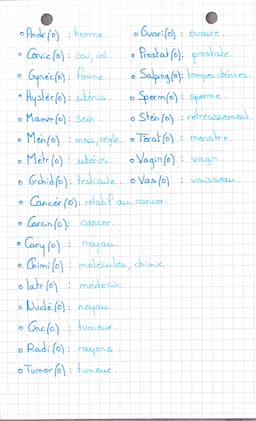 Andr(o) : homme.
Cervic(o) : cou, col.
Gynéc(o) : femme
Hystér(o) : utérus
Mamm(o) : sein.
Mén(o) : mois, règle.
Métr(o) : utérus.
Orchid(o) : testicule.
Ovari(o) : ovaire
Prostat(o) : prostate.
Salping(o) : trompes utérines.
Sperm(o) : sperme.
Stén(o) : rétrécissement
Térat(o) : monstre.
Vagin(o) : vagin
Vas(o) : vaisseau
Cancér(o) : relatif au cancer.
Carcin(o) : cancer.
Cary(o) : noyau.
Chimi(o) : molécules, chimie.
Iatr(o) : médecin.
Nuclé(o) : noyau
Onc(o) : tumeur.
Radi(o) : rayons
Tumor(o) : tumeur.